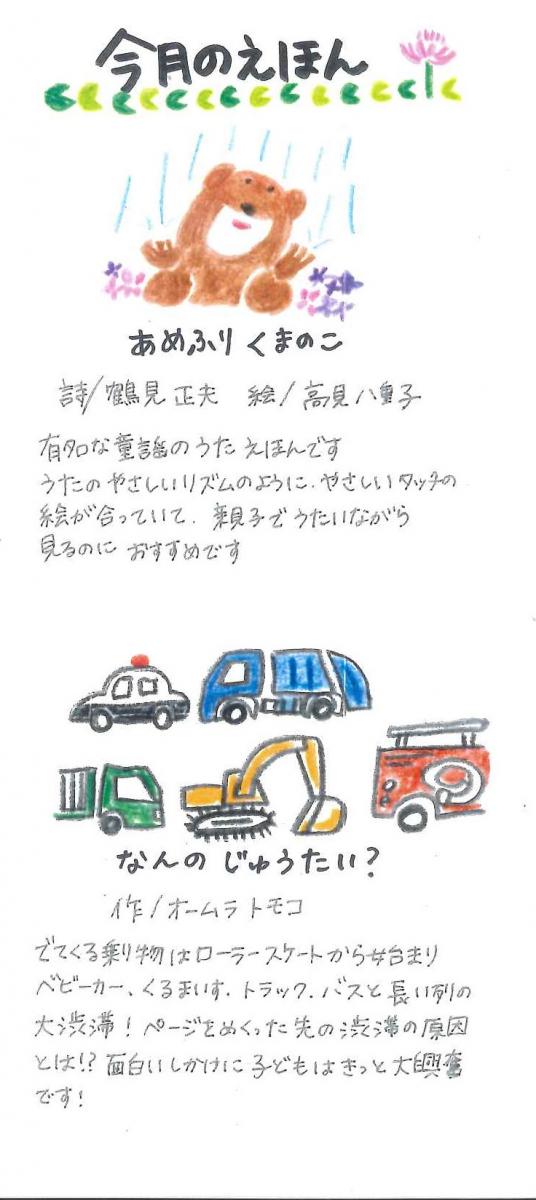 今月のえほん
あめふりくまのこ
詩/鶴見正夫 絵/高見八重子
有名な童謡のうたえほんです
うたのやさしいリズムのように、やさしいタッチの
絵が合っていて、親子でうたいながら
見るのにおすすめです
なんのじゅうたい?
作/オームラトモコ
でてくる乗り物はローラースケートから始まり
ベビーカー、くるまいす、トラック、バスと長い列の
大渋滞!ページをめくった先の渋滞の原因
とは!?面白いしかけに子どもはきっと大興奮
です!